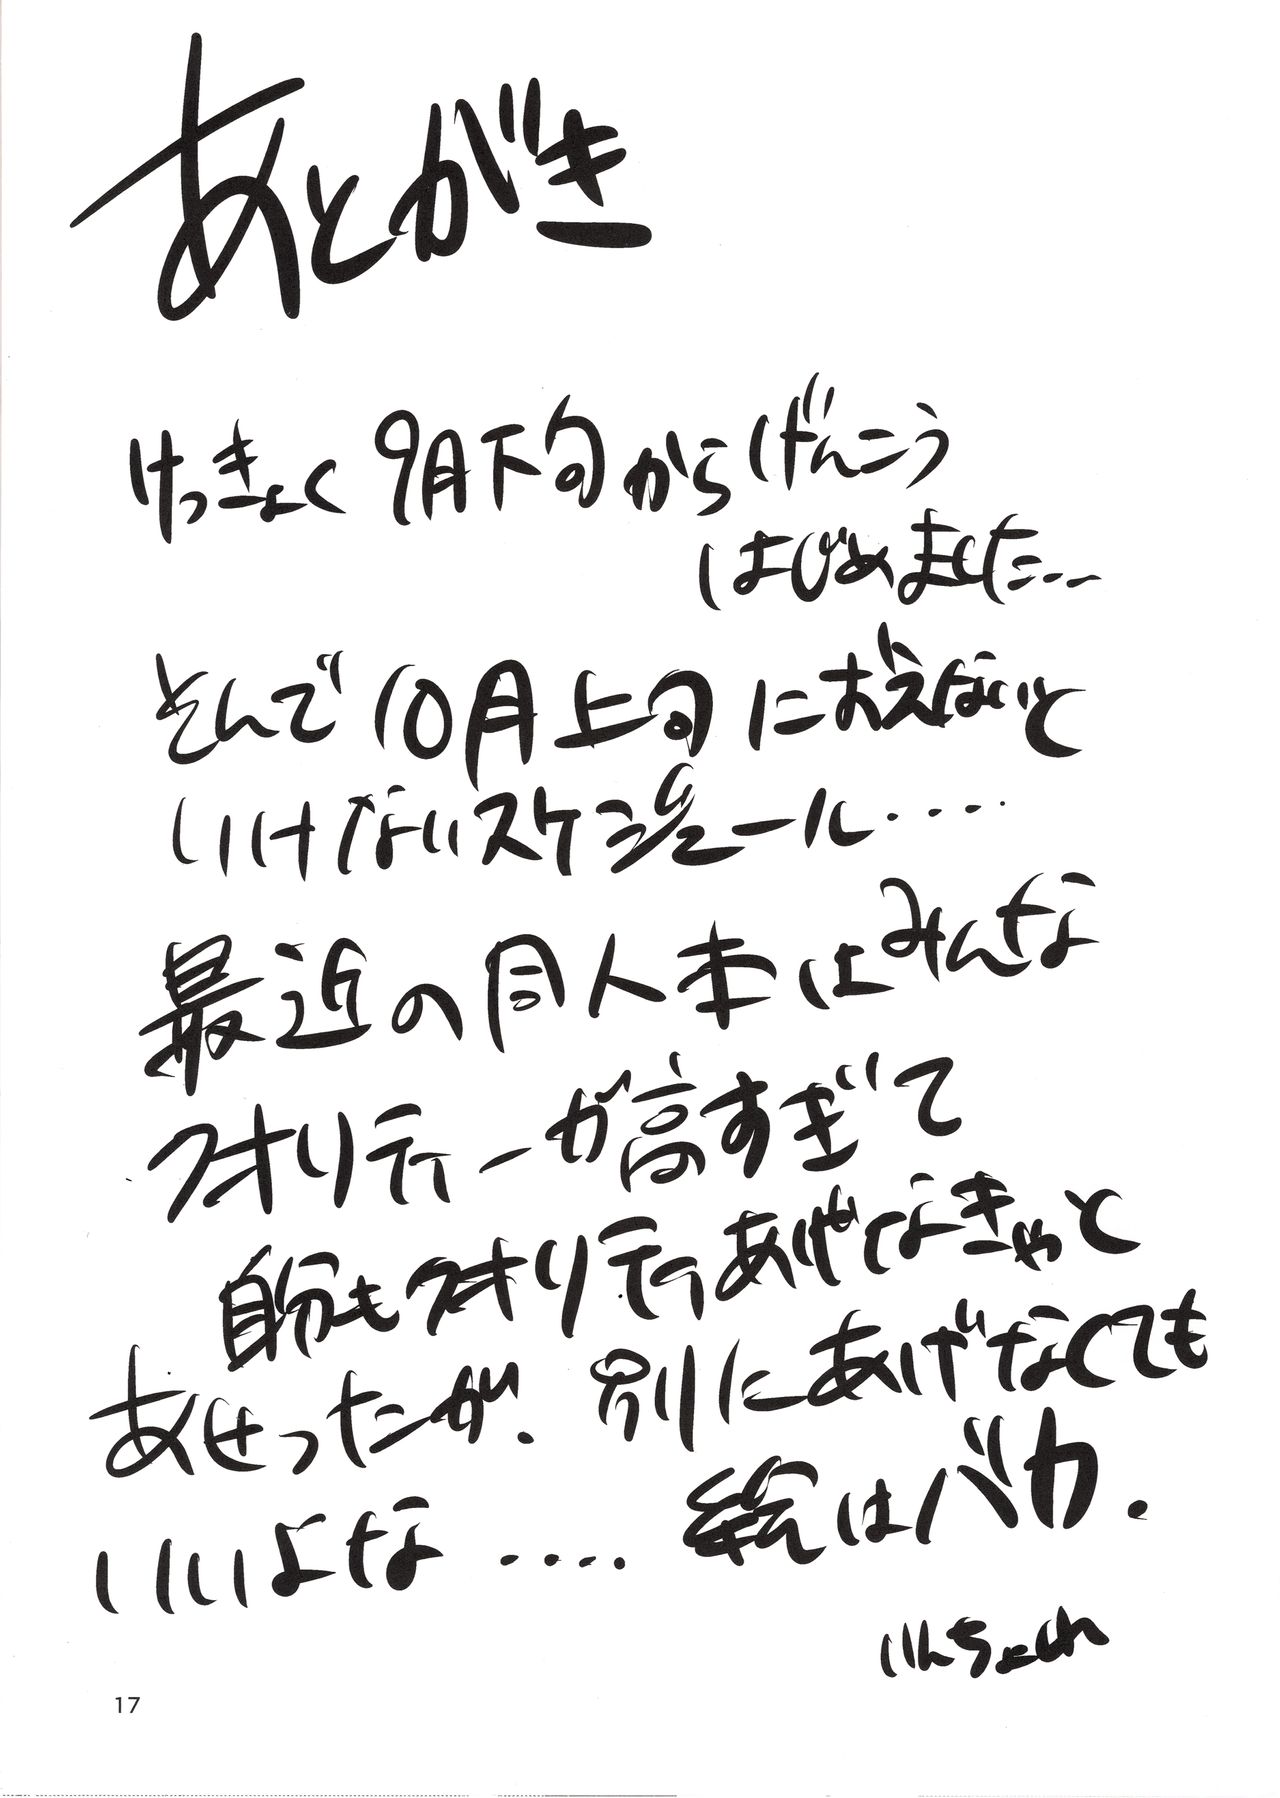 あとがき
けっきょく9月下旬からげんこう
はじめました...
そんで10月上旬におえないと
いけないスケジュール....
最近の同人本はみんな
クオリティーが高すぎて
自分もクオリティあげなきゃと
あせったが、別にあげなくても
いいよな....絵はバカ.
いんちょ
17